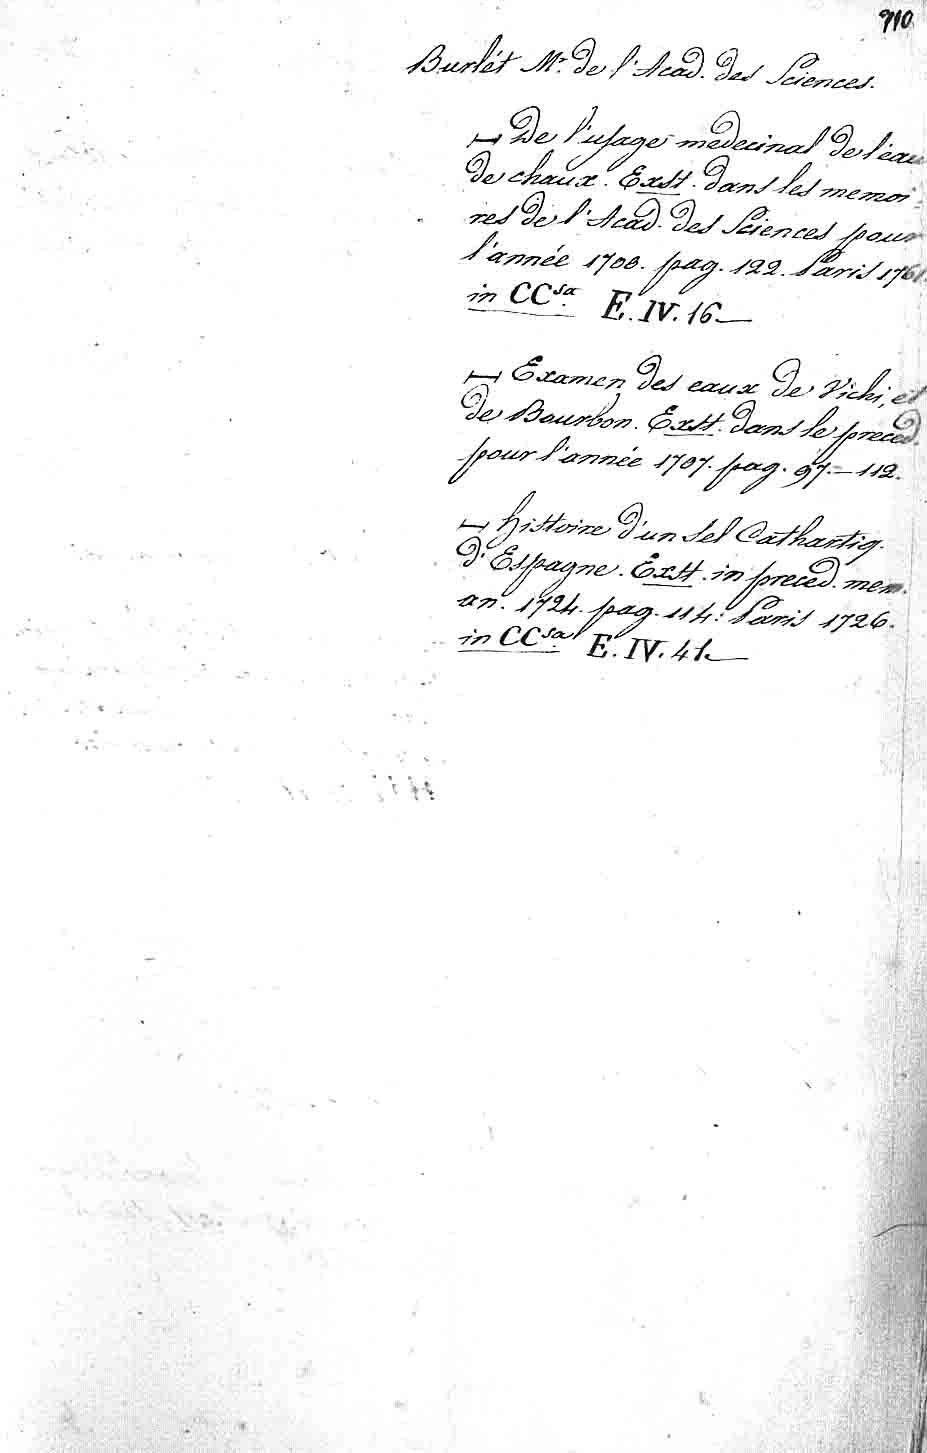 710
Burlét Mr. de l'Acad. des Sciences.
— De l'usage medecinal de l'eau
de chaux. Exst. dans les memoi-
res de l'Acad. des Sciences pour
l'année 1700. pag. 122. Paris 1761.
in CCsa. E. IV. 16.—
— Examen des eaux de Vichi, et
de Bourbon. Exst. dans le preced.
pour l'année 1707. pag. 97.—112.
— Histoire d'un sel Cathartiq.
d'Espagne. Exst. in preced. mem.
an. 1724. pag. 114: Paris 1726.
in CCsa. E. IV. 41.—